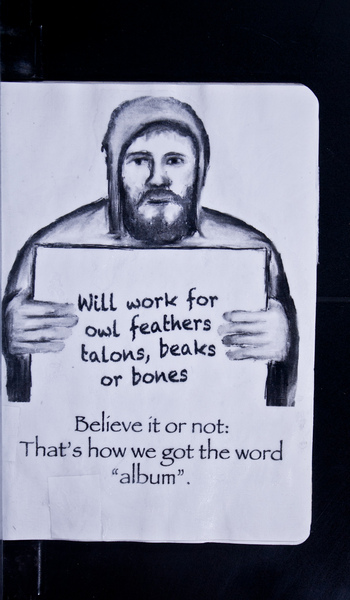 Will work for
owl feathers
talons, beaks
or bones
Believe it or not:
That's how we got the word
"album".